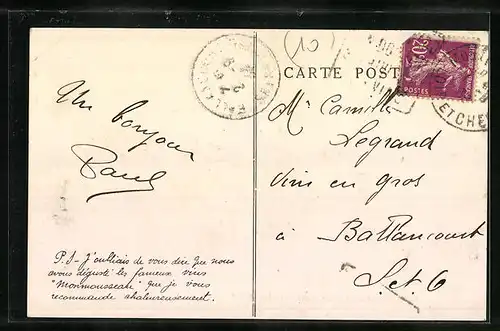 (10)
CARTE POST
20c
Un bonjour
Paul
P.S - J'oubliais de vous dire que nous
avons dégusté les fameux vins
"Monmousseau" que je vous
recommande chaleureusement.
Mr Camille
Legrand
Vins en gros
à Ballancourt
S. et O
ET CHE